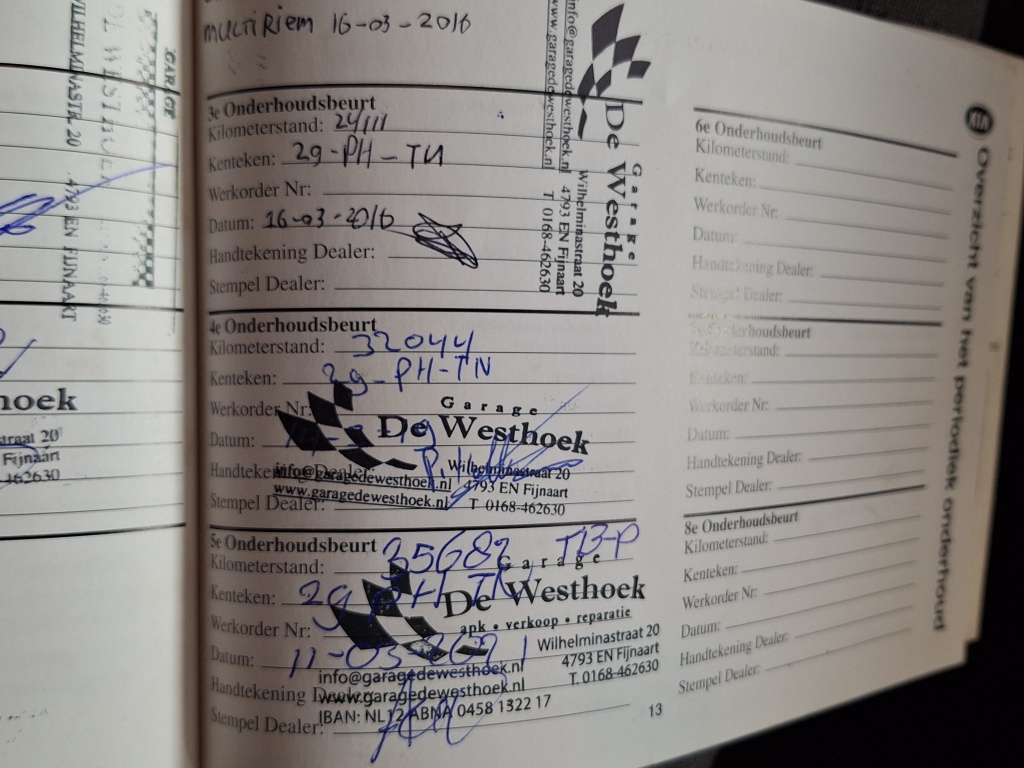 GARAGE
WILHELMINASTR. 20
4793 EN FIJNAART
hoek
traat 20
Fijnaart
462630
MULTIRIEM 16-03-2016
3e Onderhoudsbeurt
Kilometerstand: 24111
Kenteken: 29-PH-TN
Werkorder Nr:
Datum: 16-03-2016
Handtekening Dealer:
Stempel Dealer:
Garage
De Westhoek
Wilhelminastraat 20
4793 EN Fijnaart
T 0168-462630
info@garagedewesthoek.nl
www.garagedewesthoek.nl
4e Onderhoudsbeurt
Kilometerstand: 32044
Kenteken: 29-PH-TN
Werkorder Nr:
Datum:
Handtekening Dealer:
Stempel Dealer:
Garage
De Westhoek
info@garagedewesthoek.nl
www.garagedewesthoek.nl
Wilhelminastraat 20
4793 EN Fijnaart
T 0168-462630
5e Onderhoudsbeurt
Kilometerstand: 35682
Kenteken: 29 PH TN
Werkorder Nr:
Datum: 11-03-2021
Handtekening Dealer:
Stempel Dealer:
Garage
De Westhoek
apk • verkoop • reparatie
Wilhelminastraat 20
4793 EN Fijnaart
T. 0168-462630
info@garagedewesthoek.nl
www.garagedewesthoek.nl
IBAN: NL12 ABNA 0458 1322 17
6e Onderhoudsbeurt
Kilometerstand:
Kenteken:
Werkorder Nr:
Datum:
Handtekening Dealer:
Stempel Dealer:
Onderhoudsbeurt
Kilometerstand:
Kenteken:
Werkorder Nr:
Datum:
Handtekening Dealer:
Stempel Dealer:
8e Onderhoudsbeurt
Kilometerstand:
Kenteken:
Werkorder Nr:
Datum:
Handtekening Dealer:
Stempel Dealer:
13
NL Overzicht van het periodiek onderhoud